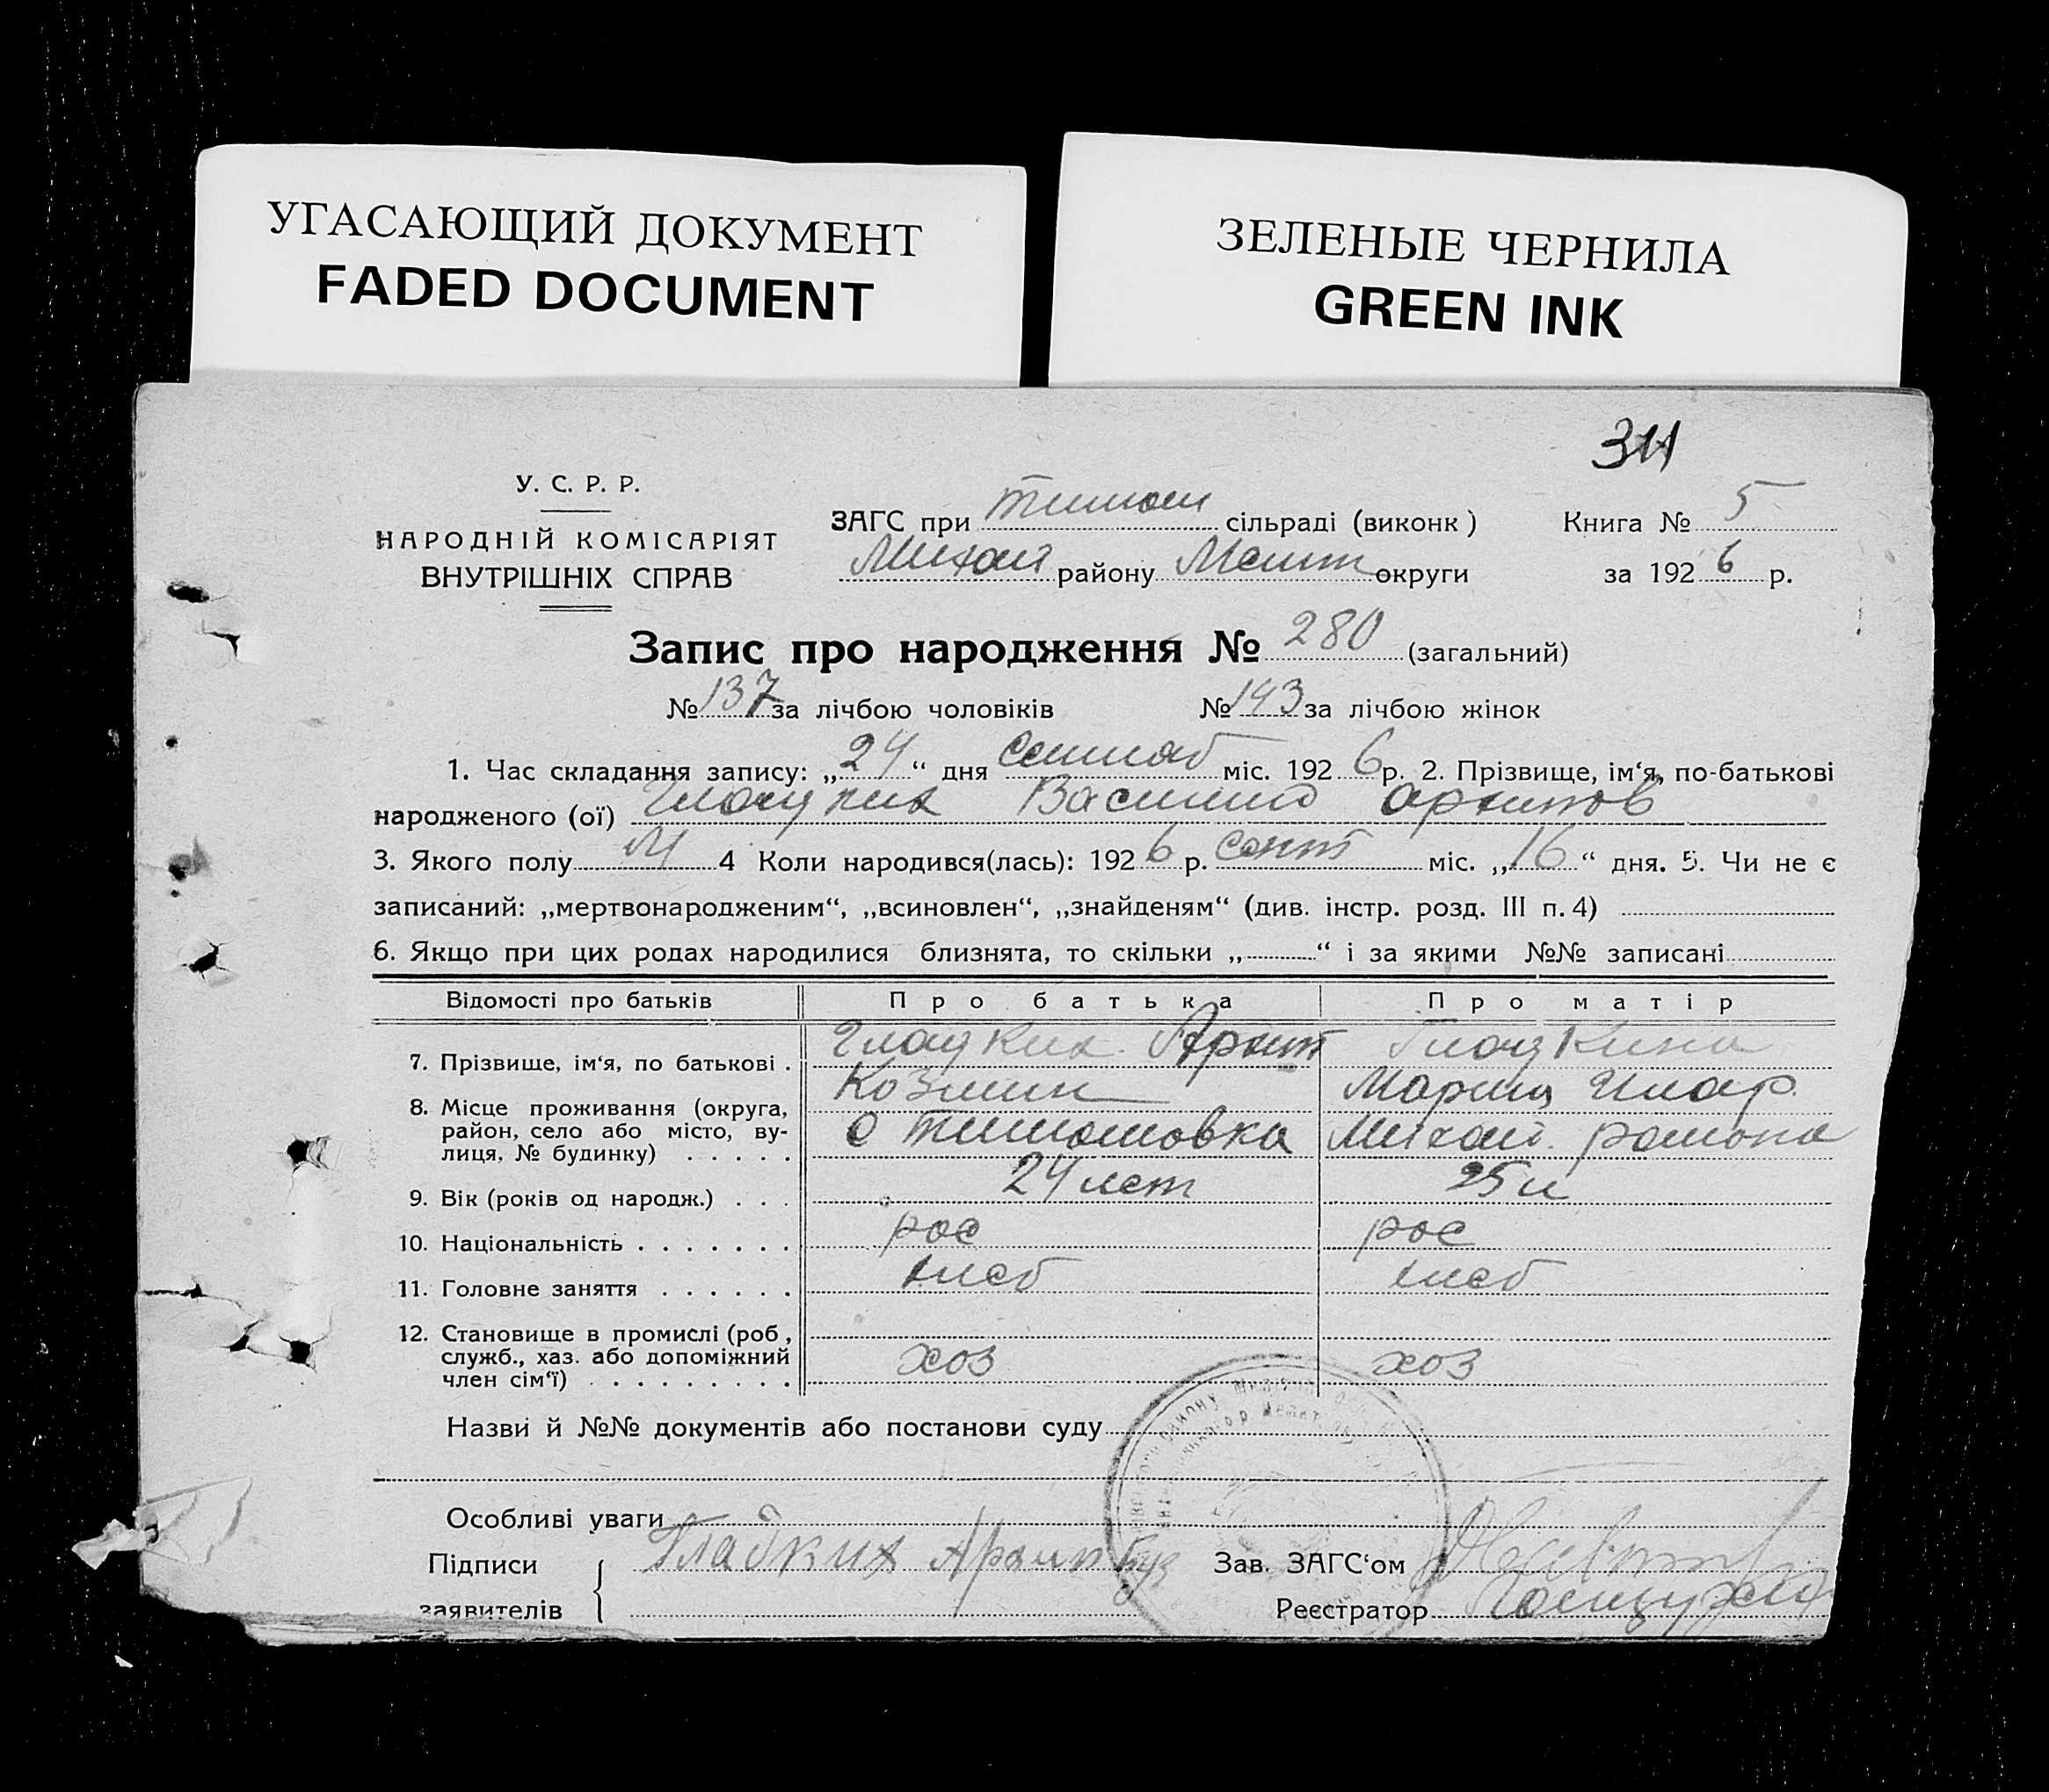 УГАСАЮЩИЙ ДОКУМЕНТ
FADED DOCUMENT
ЗЕЛЕНЫЕ ЧЕРНИЛА
GREEN INK
311
У. С. Р. Р.
НАРОДНІЙ КОМІСАРІЯТ
ВНУТРІШНІХ СПРАВ
ЗАГС при Тимош сільраді (виконк)
Михай району Мелит округи
Книга № 5
за 1926 р.
Запис про народження № 280 (загальний)
№ 137 за лічбою чоловіків № 143 за лічбою жінок
1. Час складання запису: „24“ дня сентяб міс. 1926 р. 2. Прізвище, ім‘я, по-батькові
народженого (ої) Гладких Василий Архипов
3. Якого полу М 4 Коли народився(лась): 1926 р. сент міс. „16“ дня. 5. Чи не є
записаний: „мертвонародженим“, „всиновлен“, „знайденям“ (див. інстр. розд. III п. 4)
6. Якщо при цих родах народилися близнята, то скільки „ “ і за якими №№ записані
Відомості про батьків Про батька Про матір
7. Прізвище, ім‘я, по батькові . Гладких Архип Гладкина
Козмин Мария Илар.
8. Місце проживання (округа,
район, село або місто, ву-
лиця, № будинку) . . . . . с Тимошовка Михай. района
9. Вік (років од народж.) . . . 24 лет 25 л
10. Національність . . . . . . . рос рос
11. Головне заняття . . . . . . хлеб хлеб
12. Становище в промислі (роб,
служб., хаз. або допоміжний
член сім‘ї) . . . . . . . . . хоз хоз
Назви й №№ документів або постанови суду
Особливі уваги
Підписи
заявителів
Гладких Архип Куз
Зав. ЗАГС‘ом
Реєстратор